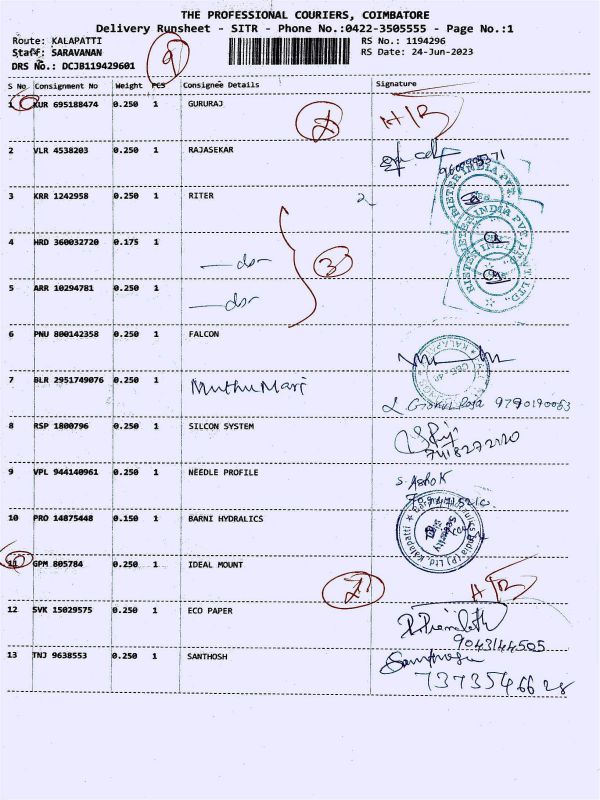 THE PROFESSIONAL COURIERS, COIMBATORE
Delivery Runsheet - SITR - Phone No.:0422-3505555 - Page No.:1
Route: KALAPATTI RS No.: 1194296
Staff: SARAVANAN RS Date: 24-Jun-2023
DRS No.: DCJB119429601
9
S No Consignment No Weight PCS Consignee Details Signature
1 KUR 695188474 0.250 1 GURURAJ
2 VLR 4538203 0.250 1 RAJASEKAR
3 KRR 1242958 0.250 1 RITER
4 HRD 360032720 0.175 1 —do—
3
5 ARR 10294781 0.250 1 —do—
6 PNU 800142358 0.250 1 FALCON
7 BLR 2951749076 0.250 1 Muthu Mari
9790190063
8 RSP 1800796 0.250 1 SILCON SYSTEM
9 VPL 944140961 0.250 1 NEEDLE PROFILE S. Ashok
10 PRO 14875448 0.150 1 BARNI HYDRALICS
11 GPM 805784 0.250 1 IDEAL MOUNT
12 SVK 15029575 0.250 1 ECO PAPER
9043144505
13 TNJ 9638553 0.250 1 SANTHOSH Santhosh
7373546628